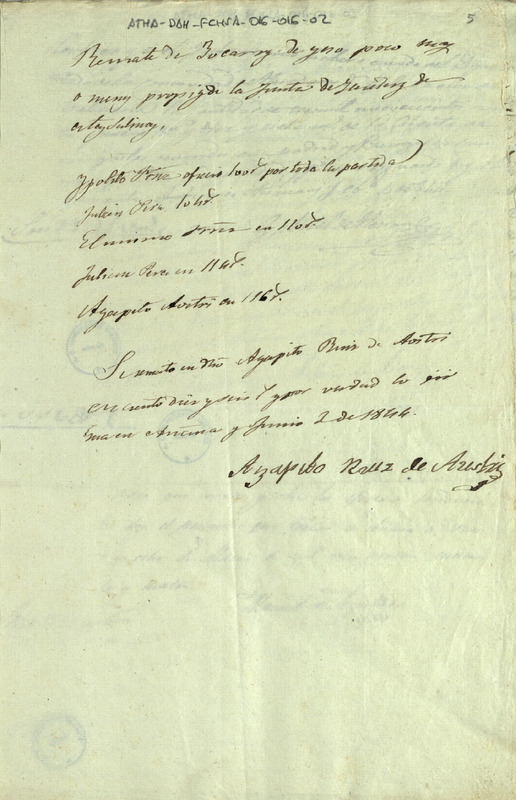 ATHA-DAH-FCHSA-016-016-02
5
Remate de 3 carros de yeso poco mas
o menos propios de la Junta de de
estas Salinas,
Ypolito Frnz ofrecio 100 rs por toda la partida
Julian Perez 104 rs.
El mismo Frnz en 110 rs.
Julian Perez en 114 rs.
Agapito Aostri en 116 rs.
Se remato en dho Agapito Ruiz de Aostri
en ciento diez y seis rs y por verdad lo fir
ma en Añana y Junio 2 de 1844.
Agapito Ruiz de Aostri